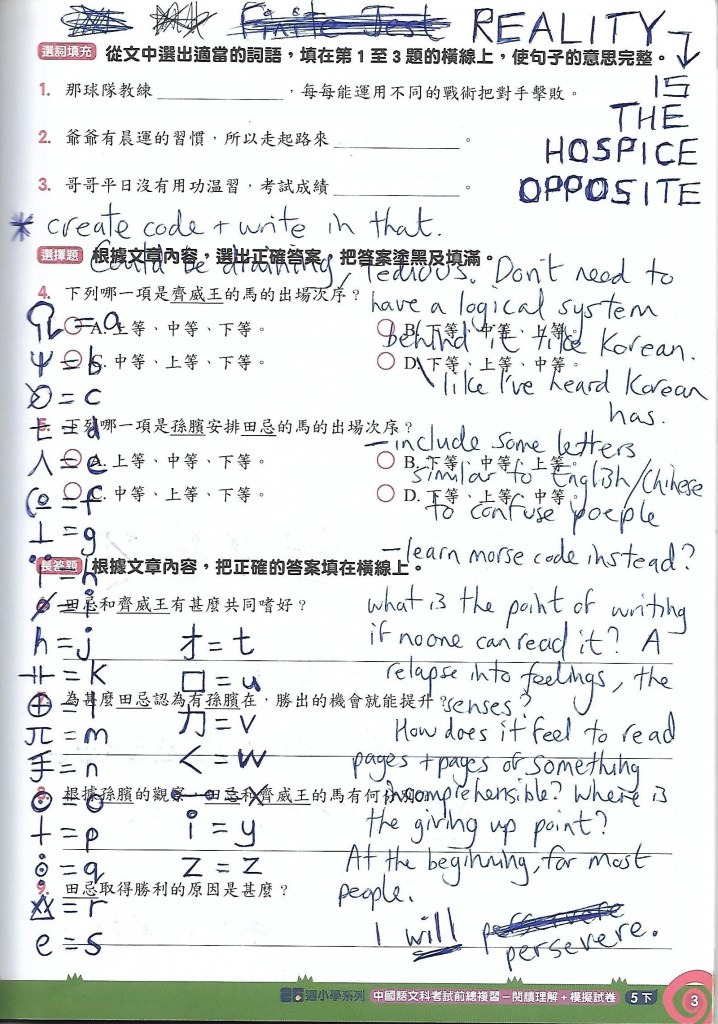 Finite Test REALITY
選詞填充 從文中選出適當的詞語，填在第 1 至 3 題的橫線上，使句子的意思完整。
IS
THE
HOSPICE
OPPOSITE
1. 那球隊教練____________，每每能運用不同的戰術把對手擊敗。
2. 爺爺有晨運的習慣，所以走起路來____________。
3. 哥哥平日沒有用功温習，考試成績____________。
* create code + write in that.
Could be draining, tedious. Don't need to
have a logical system
behind it like Korean.
like I've heard Korean
has.
選擇題 根據文章內容，選出正確答案，把答案塗黑及填滿。
4. 下列哪一項是齊威王的馬的出場次序？
A. 上等、中等、下等。 B. 下等、中等、上等。
C. 中等、上等、下等。 D. 下等、上等、中等。
5. 下列哪一項是孫臏安排田忌的馬的出場次序？
A. 上等、中等、下等。 B. 下等、中等、上等。
C. 中等、上等、下等。 D. 下等、上等、中等。
– include some letters
similar to English/Chinese
to confuse poeple
– learn morse code instead?
長答題 根據文章內容，把正確的答案填在橫線上。
6. 田忌和齊威王有甚麼共同嗜好？
7. 為甚麼田忌認為有孫臏在，勝出的機會就能提升？
8. 根據孫臏的觀察，田忌和齊威王的馬有何分別？
9. 田忌取得勝利的原因是甚麼？
what is the point of writing
if no one can read it? A
relapse into feelings, the
senses?
How does it feel to read
pages + pages of something
incomprehensible? Where is
the giving up point?
At the beginning, for most
people.
I will persevere
persevere.
= a
ψ = b
= c
七 = d
人 = e
= f
⊥ = g
= h
ø = i
h = j
= k
⊕ = l
π = m
手 = n
⊙ = o
十 = p
= q
= r
e = s
才 = t
口 = u
力 = v
く = w
= x
i = y
z = z
週小學系列 中國語文科考試前總複習－閱讀理解＋模擬試卷 5下 3